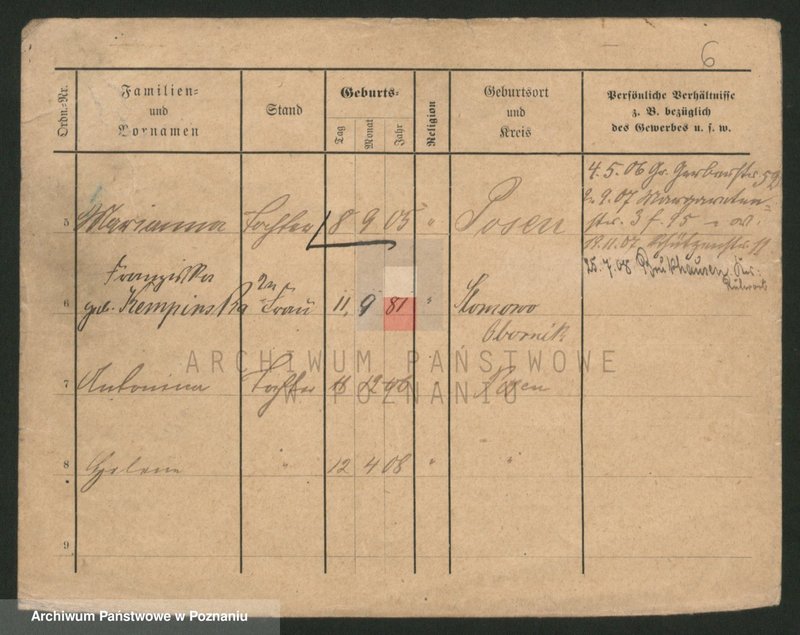 6
Ordn.-Nr.
Familien-
und
Vornamen
Stand
Geburts-
Tag
Monat
Jahr
Religion
Geburtsort
und
Kreis
Persönliche Verhältnisse
z. B. bezüglich
des Gewerbes u. s. w.
5 Marianna Tochter 8 9 05 " Posen
4. 5. 06 Gr. Gerberstr. 52
9. 07 Margareten-
str. 3
18. 11. 07 Schützenstr. 11
25. 7. 08
Franziska 2te
6 geb. Kempinska Frau 11. 9 81 " Slomowo
Obornik
7 Antonina Tochter 12 06 Posen
8 Helene " 12 4 08 " "
9
ARCHIWUM PAŃSTWOWE
W POZNANIU
Archiwum Państwowe w Poznaniu